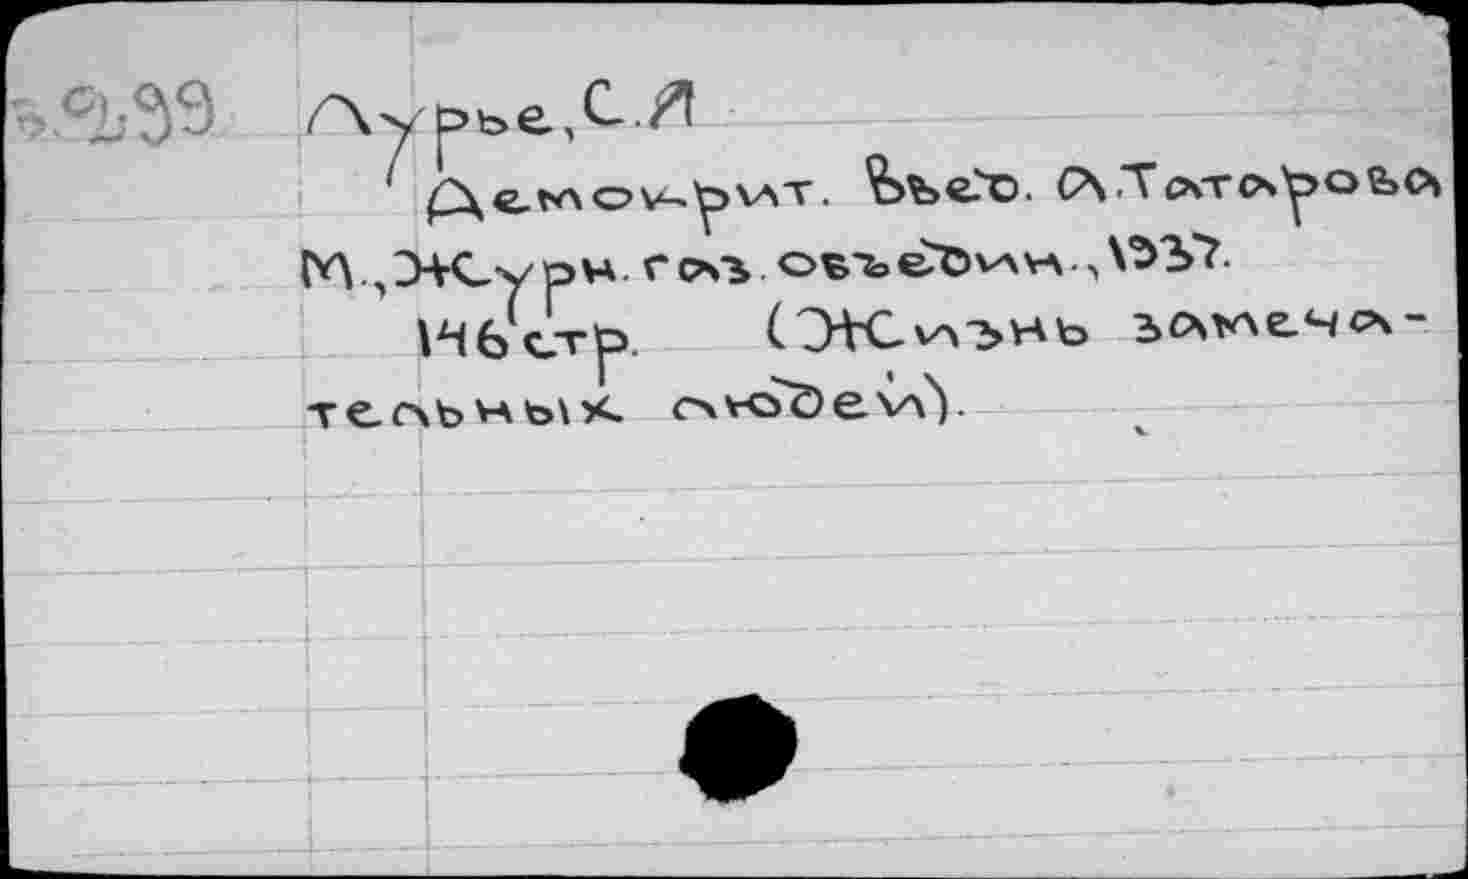 Лурье, С.Я
Демокрит. Введ. А.Татарова
М., Журн.газ.объедин., 1937.
146 стр. (Жизнь замеча-
тельных людей).